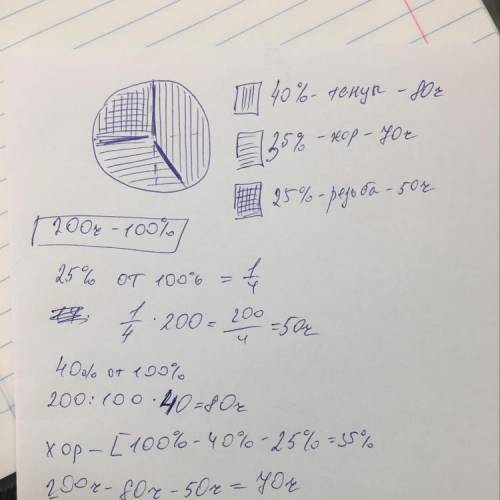 40% - танцы - 80ч
35% - хор - 70ч
25% - резьба - 50ч
200ч - 100%
25% от 100% = 1/4
1/4 · 200 = 200/4 = 50ч
40% от 100%
200 : 100 · 40 = 80ч
хор - [100% - 40% - 25% = 35%
200ч - 80ч - 50ч = 70ч